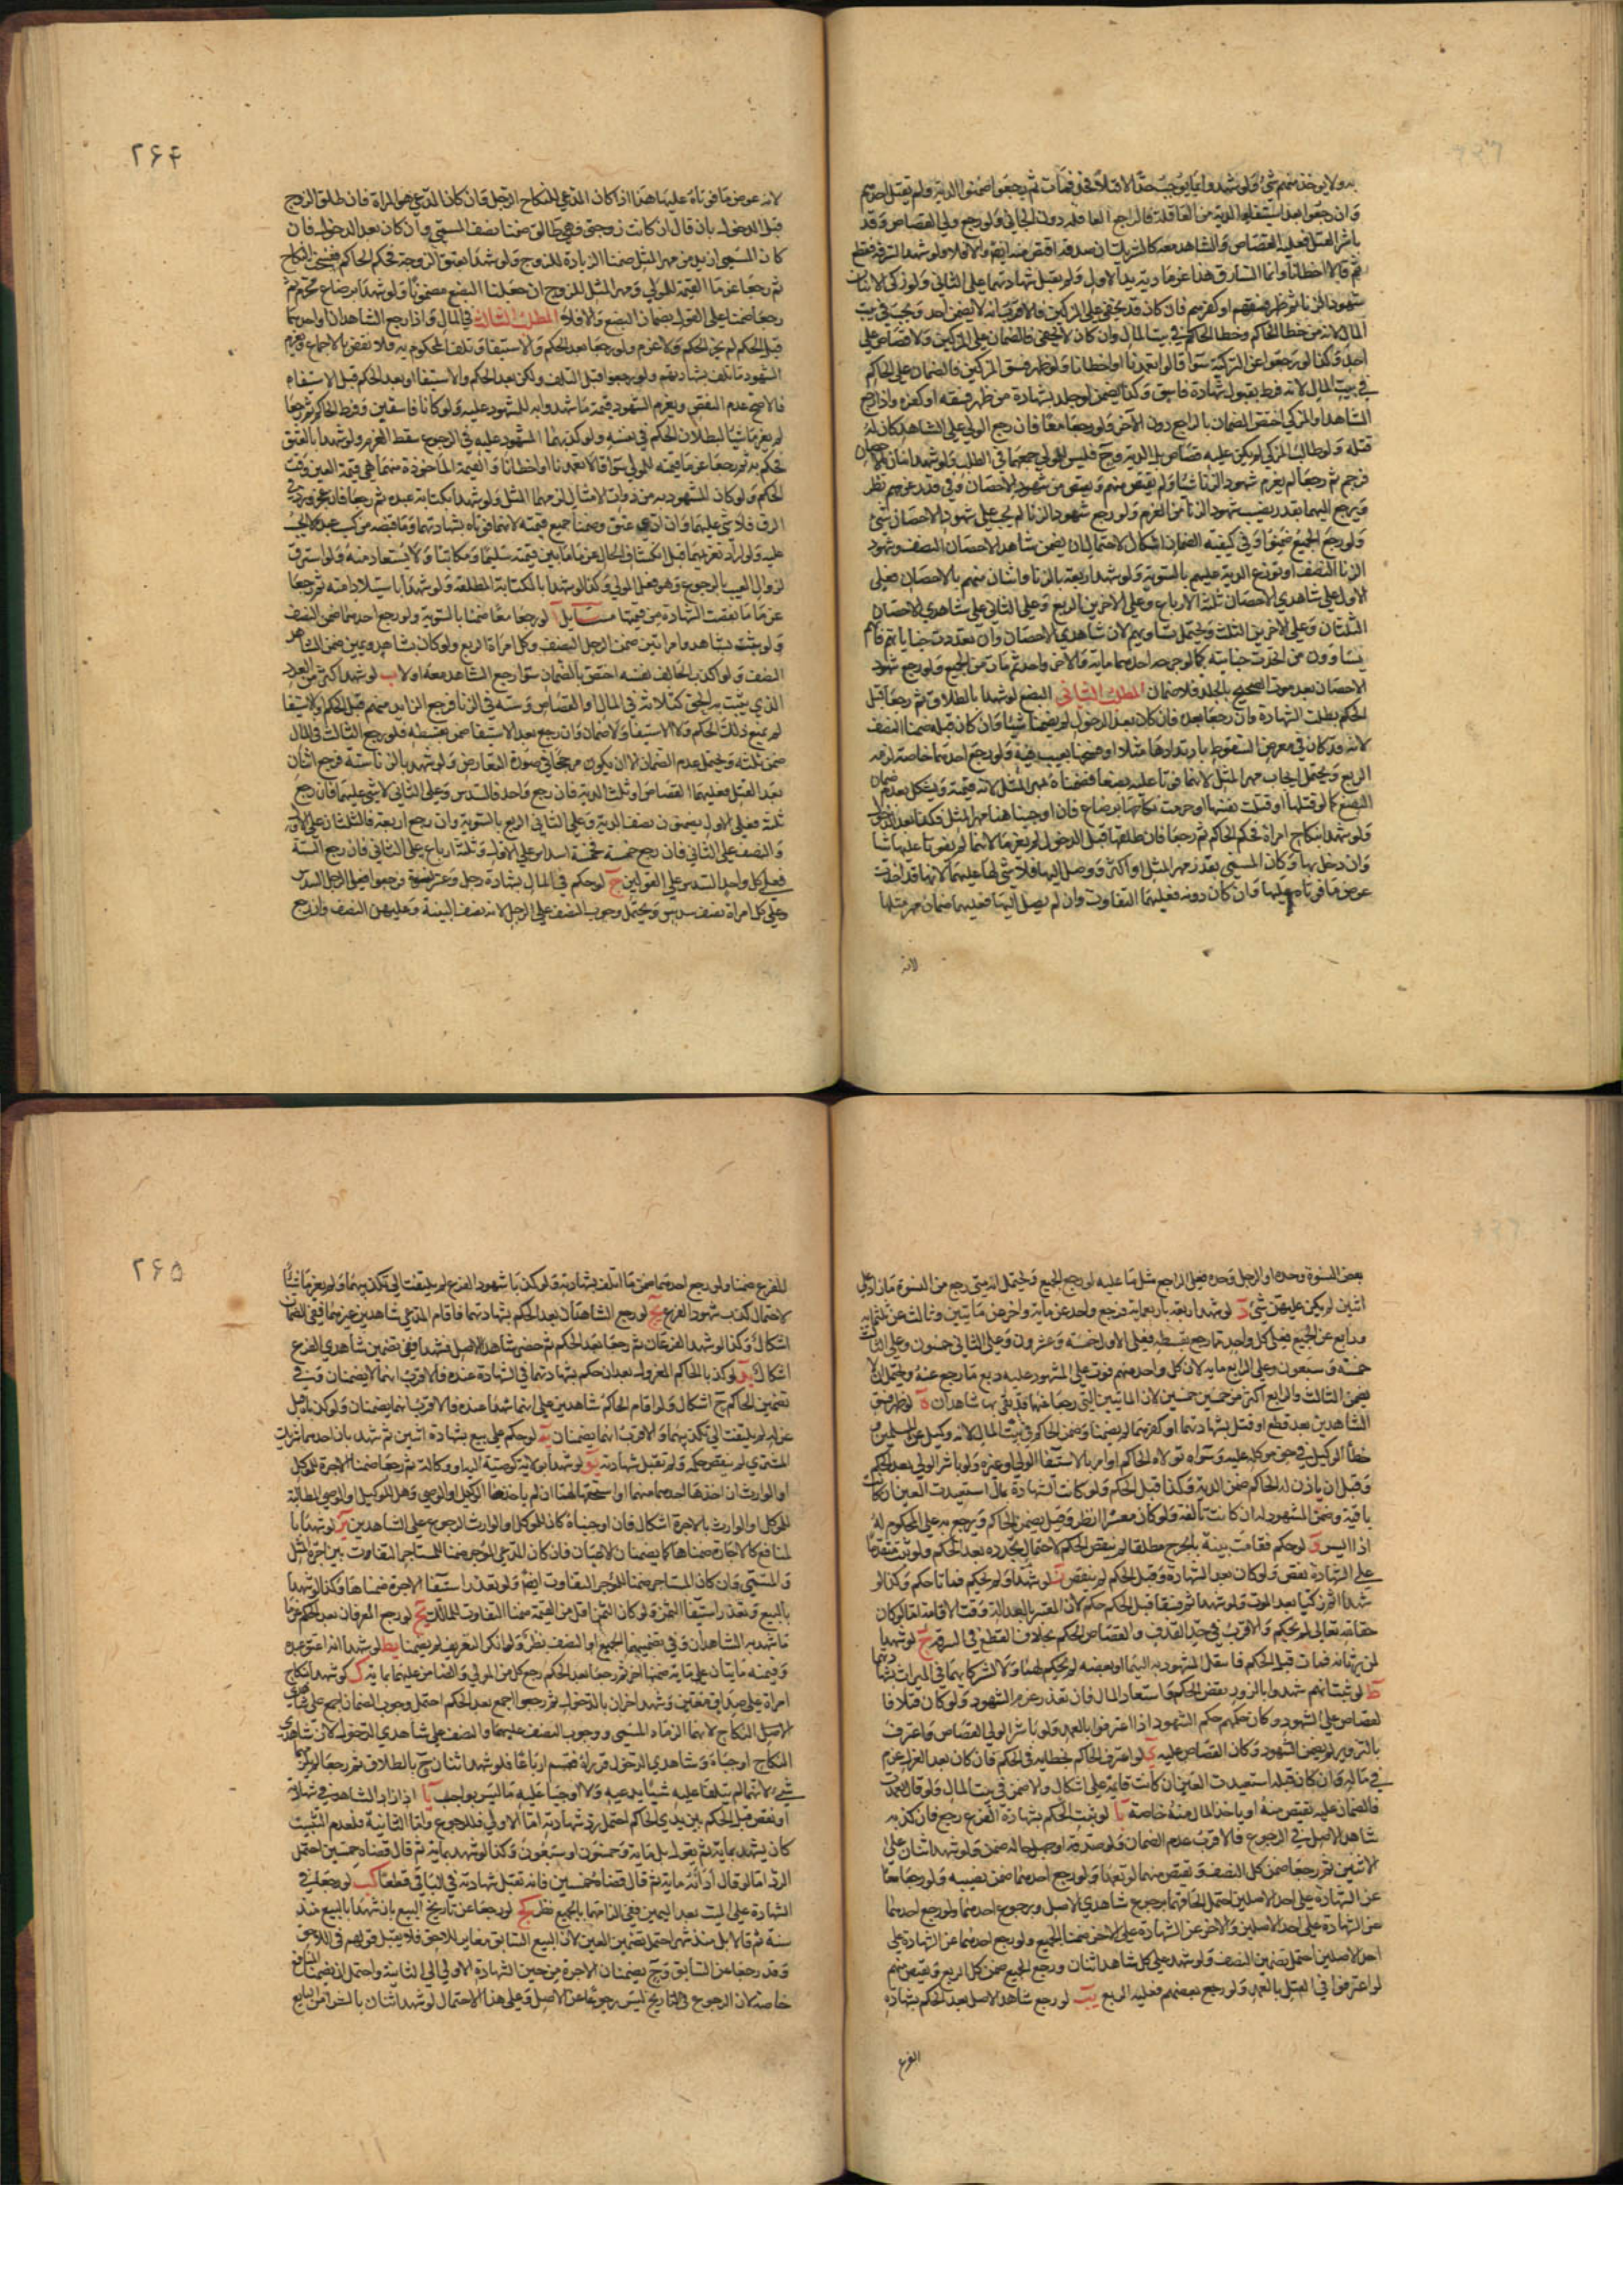 به ولا يوخذ منهم شئ ولو شهدوا بما يوجب حدا لا قتلا فحد فمات ثم رجعوا ضمنوا الدية ولم يقتل احدهم
وان رجعوا بعد استيفائها الدية من العاقلة فالراجع العاقلة دون الجاني ولو رجع ولي القصاص وقد
باشر القتل فعليه القصاص والشاهد معه كالشريك ان صدقه اقتص منه ايضا والا فلا ولو شهدا بسرقة فقطع
ثم قالا اخطانا وانما السارق هذا غرما دية يد الاول ولم يقبل شهادتهما على الثاني ولو زكى الاثنان
شهود الزنا ثم ظهر فسقهم او كفرهم فان كان قد يخفى على المزكين فالاقرب انه لا يضمن احد وتجب في بيت
المال لانه من خطا الحاكم وخطا الحاكم في بيت المال وان كان لا يخفى فالضمان على المزكين ولا قصاص على
احد وكذا لو رجعوا عن التزكية سوا قالوا تعمدنا او اخطانا ولو ظهر فسق المزكين فالضمان على الحاكم
في بيت المال لانه فرط بقبول شهادة فاسق وكذا يضمن لو جلد بشهادة من ظهر فسقه او كفره واذا رجع
الشاهد او المزكي اختص الضمان بالراجع دون الآخر ولو رجعا معا فان رجع الولي على الشاهد كان له
قتله ولو طالب المزكي لم يكن عليه قصاص بل الدية وح فليس للولي جمعهما في الطلب ولو شهد اثنان بالاحصان
فرجم ثم رجعا لم يغرم شهود الزنا شيئا ولم يقتص منهم ويقتص من شهود الاحصان وفي قدر غرمهم نظر
ويرجع اليهما بقدر نصيب شهود الزنا من الغرم ولو رجع شهود الزنا لم يجب على شهود الاحصان شئ
ولو رجع الجميع ضمنوا وفي كيفية الضمان اشكال لاحتمال ان يضمن شاهدا الاحصان النصف وشهود
الزنا النصف او توزع الدية عليهم بالسوية ولو شهد اربعة بالزنا واثنان منهم بالاحصان فعلى
الاول على شاهدي الاحصان ثلثة الارباع وعلى الاخرين الربع وعلى الثاني على شاهدي الاحصان
الثلثان وعلى الاخرين الثلث ويحتمل تساويهم لان شاهدي الاحصان وان تعددت جناياتهم فانهم
يساوون من اتحدت جنايته كما لو جرحه احدهما ماية والاخر واحدة ثم مات من الجميع ولو رجع شهود
الاحصان بعد موت الصحيح بالجلد فلا ضمان المطلب الثاني البضع لو شهدا بالطلاق ثم رجعا قبل
الحكم بطلت الشهادة وان رجعا بعده فان كان بعد الدخول لم يضمنا شيئا وان كان قبله ضمنا النصف
لانه قد كان في معرض السقوط بارتدادها مثلا او فسخها بعيب فيه ولو رجع احدهما خاصة لزمه
الربع ويحتمل ايجاب مهر المثل لانهما فوتا عليه بضعا فضمناه مهر المثل لانه قيمته ويشكل بعدم ضمان
البضع كما لو قتلها او قتلت نفسها او حرمت نكاحها برضاع فان اوجبنا هنا مهر المثل فكذا بعد الدخول
ولو شهدا بنكاح امراة فحكم الحاكم ثم رجعا فان طلقها قبل الدخول لم يغرما لانهما لم يفوتا عليها شيئا
وان دخل بها وكان المسمى بقدر مهر المثل او اكثر ووصل اليها فلا شئ لها عليهما لانها قد اخذت
عوض ما فوتاه عليها وان كان دونه فعليهما التفاوت وان لم يصل اليها فعليهما ضمان مهر مثلها
لانه
۲۶۴
لانه عوض ما فوتاه عليها هذا اذا كان المدعي للنكاح الرجل فان كان المدعي هو المراة فان طلق الزوج
قبل الدخول بان قال ان كانت زوجتي فهي طالق ضمنا نصف المسمى وان كان بعد الدخول فان
كان المسمى ازيد من مهر المثل ضمنا الزيادة للزوج ولو شهدا بعتق الزوجة فحكم الحاكم ففسخت النكاح
ثم رجعا غرما القيمة للمولى ومهر المثل للزوج ان جعلنا البضع مضمونا ولو شهدا برضاع محرم ثم
رجعا ضمنا على القول بضمان البضع والا فلا المطلب الثالث في المال واذا رجع الشاهدان او احدهما
قبل الحكم لم يجز الحكم ولا غرم ولو رجعا بعد الحكم والاستيفا وتلف المحكوم به فلا نقض بالاجماع ويغرم
الشهود ما تلف بشهادتهم ولو رجعوا قبل التلف ولكن بعد الحكم والاستيفا او بعد الحكم قبل الاستيفاء
فالاصح عدم النقض ويغرم الشهود قيمة ما شهدوا به للمشهود عليه ولو كانا فاسقين وفرط الحاكم ثم رجعا
لم يغرما شيئا لبطلان الحكم في نفسه ولو كذبهما المشهود عليه في الرجوع سقط الغرم ولو شهدا بالعتق
فحكم به ثم رجعا غرما قيمته للمولى سوا قالا تعمدنا او اخطانا والقيمة الماخوذة منهما هي قيمة العين وقت
الحكم ولو كان المشهود به من ذوات الامثال لزمهما المثل ولو شهدا بكتابة عبده ثم رجعا فان عجز ورد في
الرق فلا شئ عليهما وان ادى وعتق ضمنا جميع قيمته لانهما فوتاه بشهادتهما وما قبضه من كسب عبده لا يحسب
عليه ولو اراد تغريمهما قبل انكشاف الحال غرما ما بين قيمته سليما ومكاتبا ولا يستعاد منه ولو استرق
لزوال العيب بالرجوع وهو فعل المولى وكذا لو شهدا بالكتابة المطلقة ولو شهدا باستيلاد امته ثم رجعا
غرما ما نقصت الشهادة من قيمتها مسائل ا لو رجعا معا ضمنا بالسوية ولو رجع احدهما ضمن النصف
ولو ثبت بشاهد وامراتين ضمن الرجل النصف وكل امراة الربع ولو كان بشاهد ويمين ضمن الشاهد
النصف ولو اكذب الحالف نفسه اختص بالضمان سوا رجع الشاهد معه او لا ب لو شهد اكثر من العدد
الذي يثبت به الحق كثلاثة في المال او القصاص وستة في الزنا فرجع الزايد منهم قبل الحكم والاستيفا
لم يمنع ذلك الحكم ولا الاستيفا ولا ضمان وان رجع بعد الاستيفا ضمن بقسطه فلو رجع الثالث في المال
ضمن ثلثه ويحتمل عدم الضمان الا ان يكون مرجحا في صورة التعارض ولو شهد بالزنا ستة فرجع اثنان
بعد القتل فعليهما القصاص او ثلث الدية فان رجع واحد فالسدس وعلى الثاني لا شئ عليهما فان رجع
ثلثة فعلى الاول يضمنون نصف الدية وعلى الثاني الربع بالسوية وان رجع اربعة فالثلثان على الاول
والنصف على الثاني فان رجع خمسة فخمسة اسداس على الاول وثلثة ارباع على الثاني فان رجع الستة
فعلى كل واحد السدس على القولين ج لو حكم في المال بشهادة رجل وعشر نسوة فرجعوا فعلى الرجل السدس
وعلى كل امراة نصف سدس ويحتمل وجوب النصف على الرجل لانه نصف البينة وعليهن النصف وان رجع
بعض النسوة وحده او الرجل وحده فعلى الراجع مثل ما عليه لو رجع الجميع ويحتمل انه متى رجع من النسوة ما زاد على
اثنين لم يكن عليهن شئ د لو شهد اربعة باربعماية فرجع واحد عن ماية واخر عن مايتين وثالث عن ثلثماية
ورابع عن الجميع فعلى كل واحد مما رجع بقسطه فعلى الاول خمسة وعشرون وعلى الثاني خمسون وعلى الثالث
خمسة وسبعون وعلى الرابع ماية لان كل واحد منهم فوت على المشهود عليه ربع ما رجع عنه ويحتمل ان لا
يضمن الثالث والرابع اكثر من خمسين خمسين لان المايتين التي رجعا عنها قد بقي بها شاهدان ه لو ظهر فسق
الشاهدين بعد قطع او قتل بشهادتهما او كفرهما لم يضمنا وضمن الحاكم في بيت المال لانه وكيل عن المسلمين و
خطأ الوكيل في حق موكله عليه وسواه تولاه الحاكم او امر بالاستيفا الولي او غيره ولو باشر الولي بعد الحكم
وقبل ان ياذن له الحاكم ضمن الدية وكذا قبل الحكم ولو كانت الشهادة بمال استعيدت العين ان كانت
باقية وضمن المشهود له ان كانت تالفة ولو كان معسرا انظر وقيل يضمن الحاكم ويرجع به على المحكوم له
اذا ايسر و لو حكم فقامت بينة بالجرح مطلقا لم ينقض الحكم لاحتمال تجدده بعد الحكم ولو ثبت متقدما
على الشهادة نقض ولو كان بعد الشهادة وقبل الحكم لم ينقض ز لو شهدا ولم يحكم فماتا حكم وكذا لو
شهدا ثم زكيا بعد الموت ولو شهدا ثم فسقا قبل الحكم حكم لان المعتبر بالعدالة وقت الاقامة اما لو كان
حقا لله تعالى لم يحكم والاقرب في حد القذف والقصاص الحكم بخلاف القطع في السرقة ح لو شهدا
لمن يرثانه فمات قبل الحكم فانتقل المشهود به اليهما او بعضه لم يحكم لهما ولا لشركايهما في الميراث بشهادتهما
ط لو ثبت انهم شهدوا بالزور نقض الحكم واستعاد المال فان تعذر غرم الشهود ولو كان قتلا فا
لقصاص على الشهود وكان حكمهم حكم الشهود اذا اعترفوا بالعمد ولو باشر الولي القصاص واعترف
بالتزوير لم يضمن الشهود وكان القصاص عليه ي لو اعترف الحاكم بخطايه في الحكم فان كان بعد العزل غرم
في ماله وان كان قبله استعيدت العين ان كانت قايمة على اشكال والا ضمن في بيت المال ولو قال تعمدت
فالضمان عليه يقتص منه او ياخذ المال منه خاصة يا لو ثبت الحكم بشهادة الفرع رجع فان كذبه
شاهد الاصل في الرجوع فالاقرب عدم الضمان ولو صدقه او جهل حاله ضمن ولو شهد اثنان على
الاثنين ثم رجعا ضمن كل النصف ويقتص منهما لو تعمدا ولو رجع احدهما ضمن نصيبه ولو رجعا معا
عن الشهادة على احد الاصلين احتمل الحاقهما برجوع شاهدي الاصل وبرجوع احدهما ولو رجع احدهما
عن الشهادة على احد الاصلين والاخر عن الشهادة على الاخر ضمنا الجميع ولو رجع احدهما عن الشهادة على
احد الاصلين احتمل تضمين النصف ولو شهد على كل شاهد اثنان ورجع الجميع ضمن كل الربع ويقتص منهم
لو اعترفوا في القتل بالعمد ولو رجع بعضهم فعليه الربع يب لو رجع شاهد الاصل بعد الحكم بشهادة
الفرع
۲۶۵
الفرع ضمنا ولو رجع احدهما ضمن ما اتلف بشهادته ولو كذبا شهود الفرع لم يلتفت الى تكذيبهما ولم يغرما شيئا
لاحتمال كذب شهود الفرع يج لو رجع الشاهدان بعد الحكم بشهادتهما فاقام المدعي شاهدين غيرهما ففي الضمان
اشكال وكذا لو شهد الفرعان ثم رجعا بعد الحكم ثم حضر شاهدا الاصل فشهدا ففي تضمين شاهدي الفرع
اشكال يد لو كذبا الحاكم المعزول بعد ان حكم بشهادتهما في الشهادة عنده فالاقرب انهما لا يضمنان وفي
تضمين الحاكم ح اشكال ولو اقام الحاكم شاهدين على انهما شهدا عنده فالاقرب انهما يضمنان ولو كذبا قبل
عزله لم يلتفت الى تكذيبهما والاقرب انهما يضمنان يه لو حكم على بيع بشهادة اثنين ثم شهد بان احدهما شريك
المشتري لم ينقض حكمه ولم تقبل شهادته يو لو شهدا بولاية كوصية اليه او وكالة ثم رجعا ضمنا الاجرة للموكل
او الوارث ان اخذها احدهما منهما او استحقها لهما ان لم ياخذها الوكيل او الوصي وهل للوكيل او الوصي المطالبة
للموكل او الوارث بالاجرة اشكال فان اوجبناه كان للموكل او الوارث الرجوع على الشاهدين يز لو شهدا با
لمنافع كالاجارة ضمناها كما يضمنان الاعيان فان كان المدعي الموجر ضمنا للمستاجر التفاوت بين اجرة المثل
والمسمى وان كان المستاجر ضمنا للموجر التفاوت ايضا ولو تعذر استيفا الاجرة ضمناها وكذا لو شهدا
بالبيع وتعذر استيفا الثمن ولو كان الثمن اقل من القيمة ضمنا التفاوت للمالك يح لو رجع المعرفان بعد الحكم غرما
ما شهد به الشاهدان وفي تضمينهما الجميع او النصف نظر ولو انكرا التعريف لم يضمنا يط لو شهدا انه اعتق عبده
وقيمته مايتان على ماية ضمنها اخر ثم رجعا بعد الحكم رجع كل من المولى والضامن عليهما بماية ك لو شهدا بنكاح
امراة على صداق معين وشهد اخران بالدخول ثم رجعوا اجمع بعد الحكم احتمل وجوب الضمان اجمع على شاهدي
الاصل النكاح لانهما الزماه المسمى ووجوب النصف عليهما والنصف على شاهدي الدخول لان شاهدي
النكاح اوجباه وشاهدي الدخول قرراه فقسم ارباعا فلو شهد اثنان ح بالطلاق ثم رجعا لم يلزمهما
شئ لانهما لم يتلفا عليه شيئا يدعيه ولا اوجبا عليه ما ليس بواجب كا اذا زاد الشاهد في شهادته
او نقص قبل الحكم بين يدي الحاكم احتمل رد شهادته اما الاولى فللرجوع واما الثانية فلعدم التثبت
كان يشهد بماية ثم يقول بل ماية وخمسون او سبعون وكذا لو شهد بماية ثم قال قضاه خمسين احتمل
الرد اما لو قال ادانه ماية ثم قال قضاه خمسين فانه تقبل شهادته في الباقي قطعا كب لو رجعا في
الشهادة على الميت بعد اليمين ففي الزامهما بالجميع نظر كج لو رجعا عن تاريخ البيع بان شهدا بالبيع منذ
سنة ثم قالا بل منذ شهر احتمل تضمين العين لان البيع السابق مغاير للاحق فلا يقبل قولهم في اللاحق
وقد رجعا عن السابق وح يضمنان الاجرة من حين الشهادة الاولى الى الثانية واحتمل ان يضمنا المنافع
خاصة لان الرجوع في التاريخ ليس رجوعا عن الاصل وعلى هذا الاحتمال لو شهد اثنان بالشرا من البايع